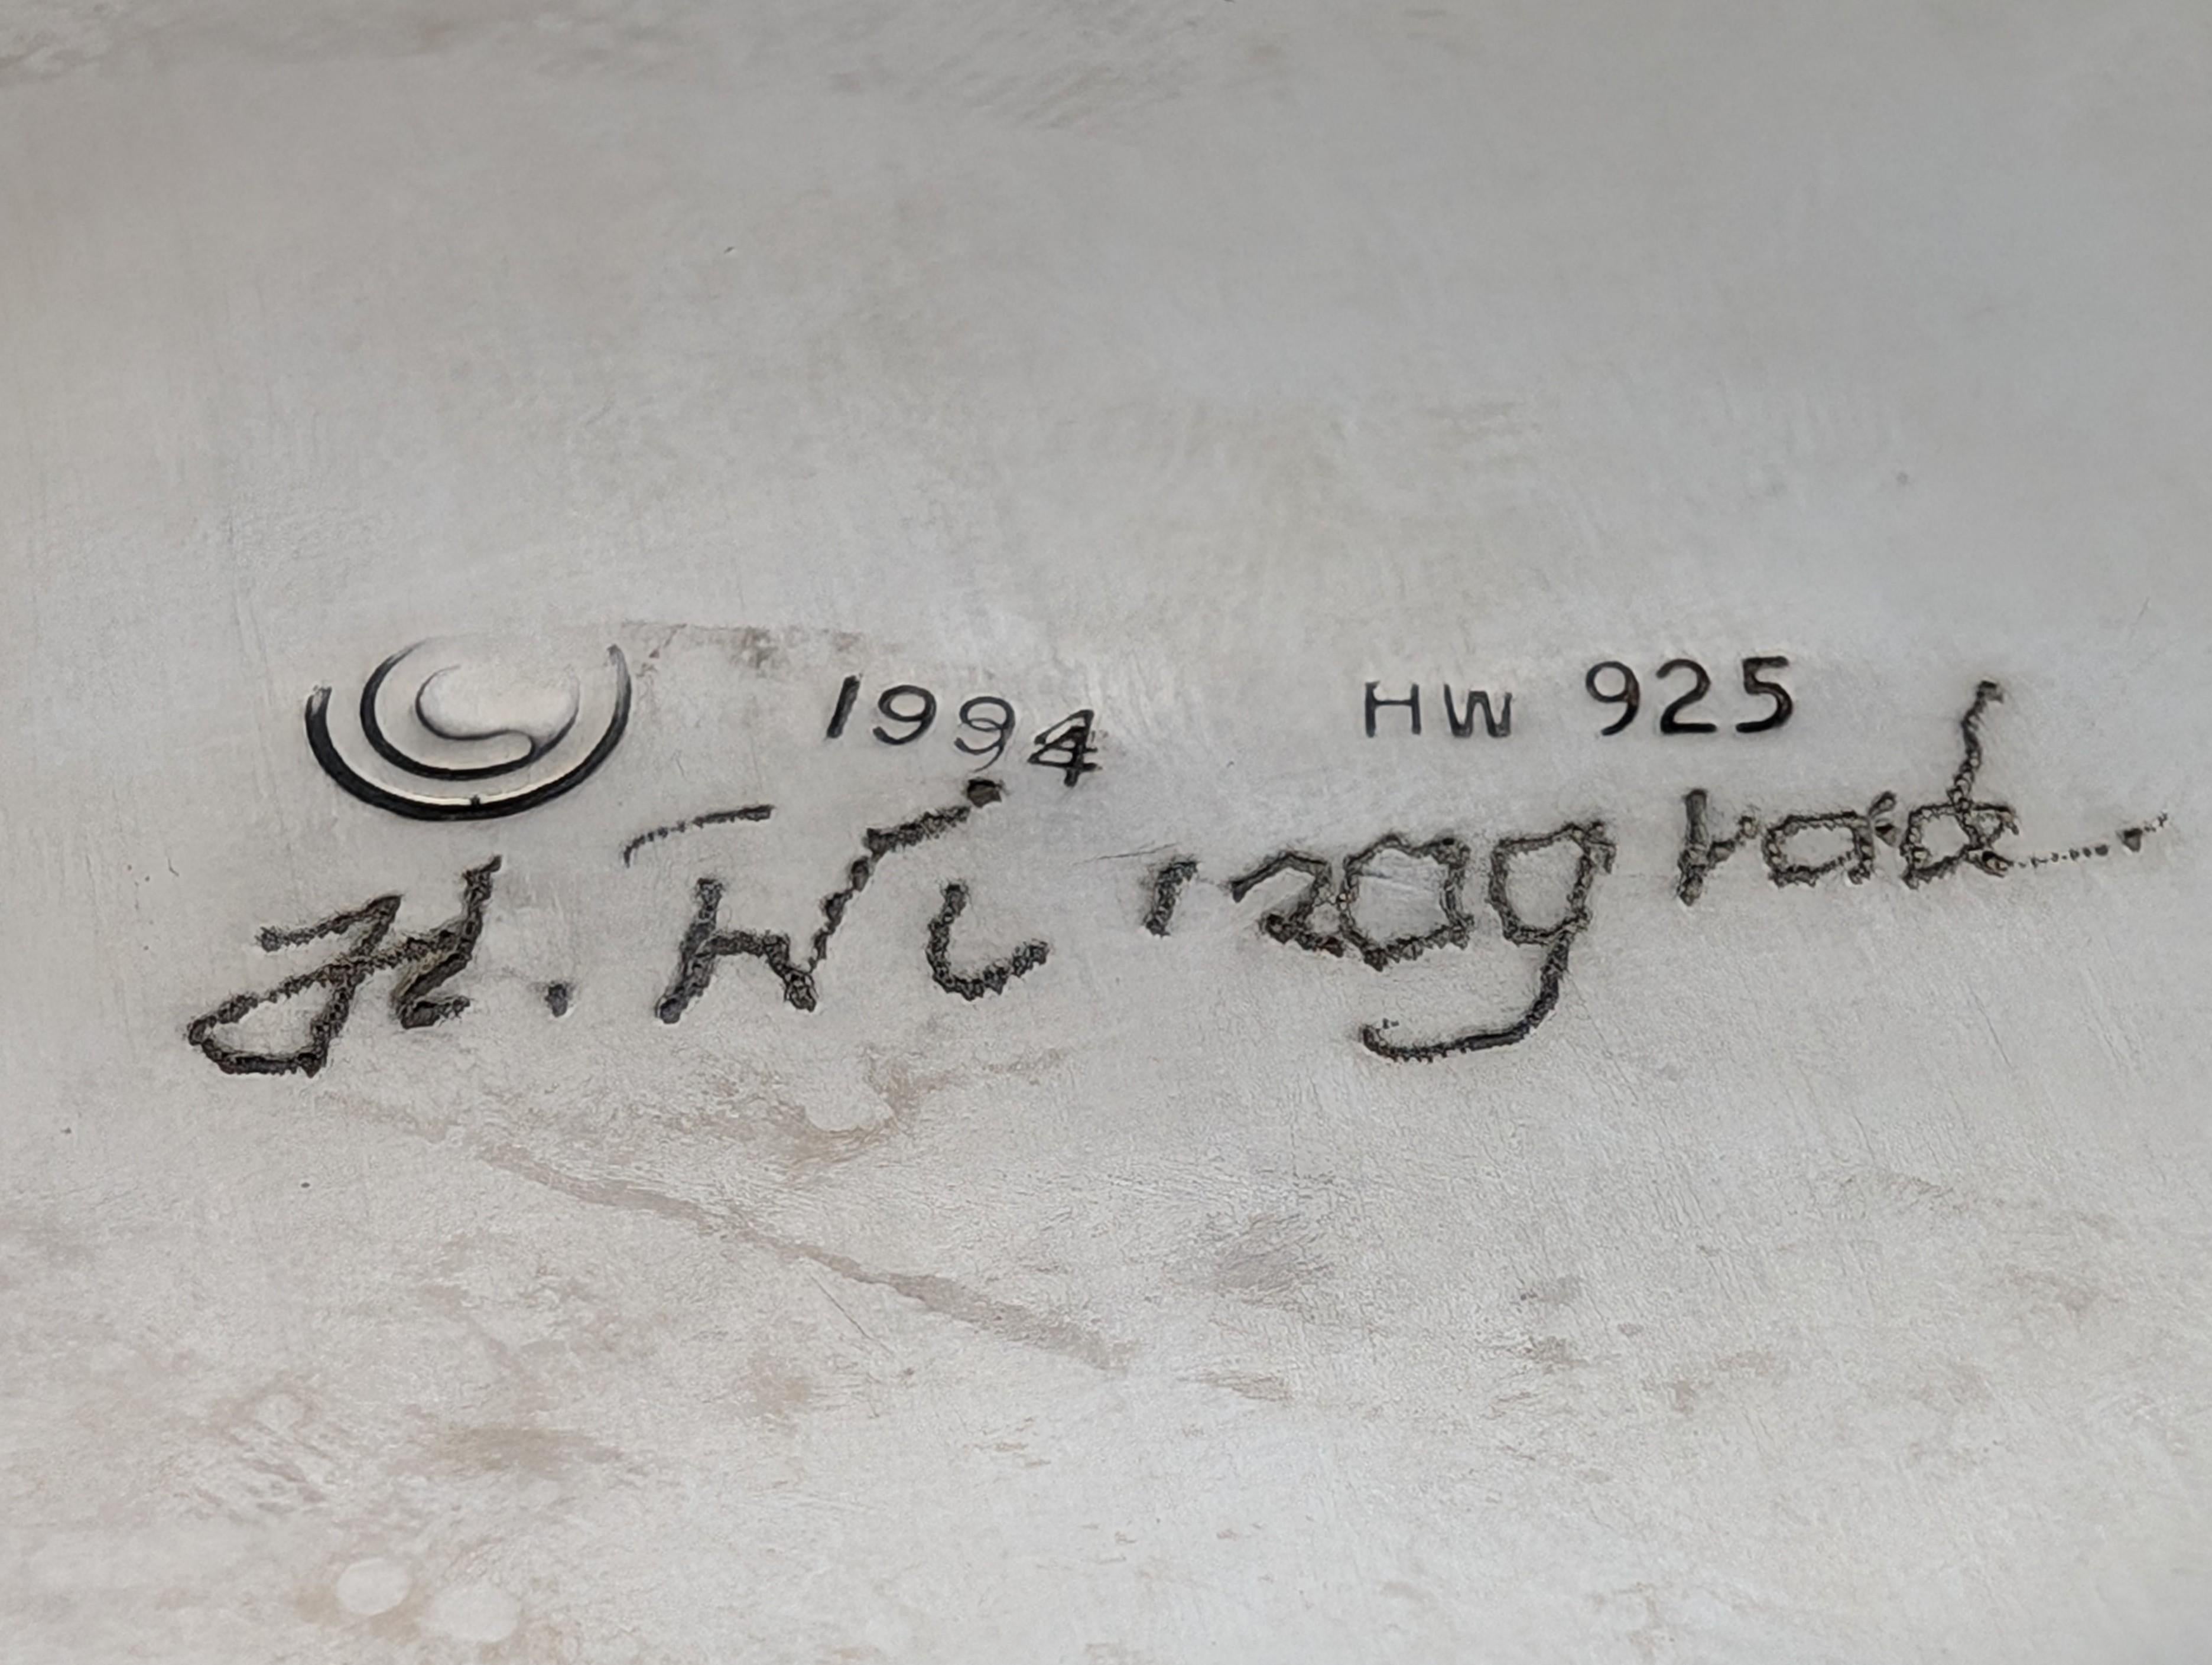 © 1994 HW 925
H. Winograd